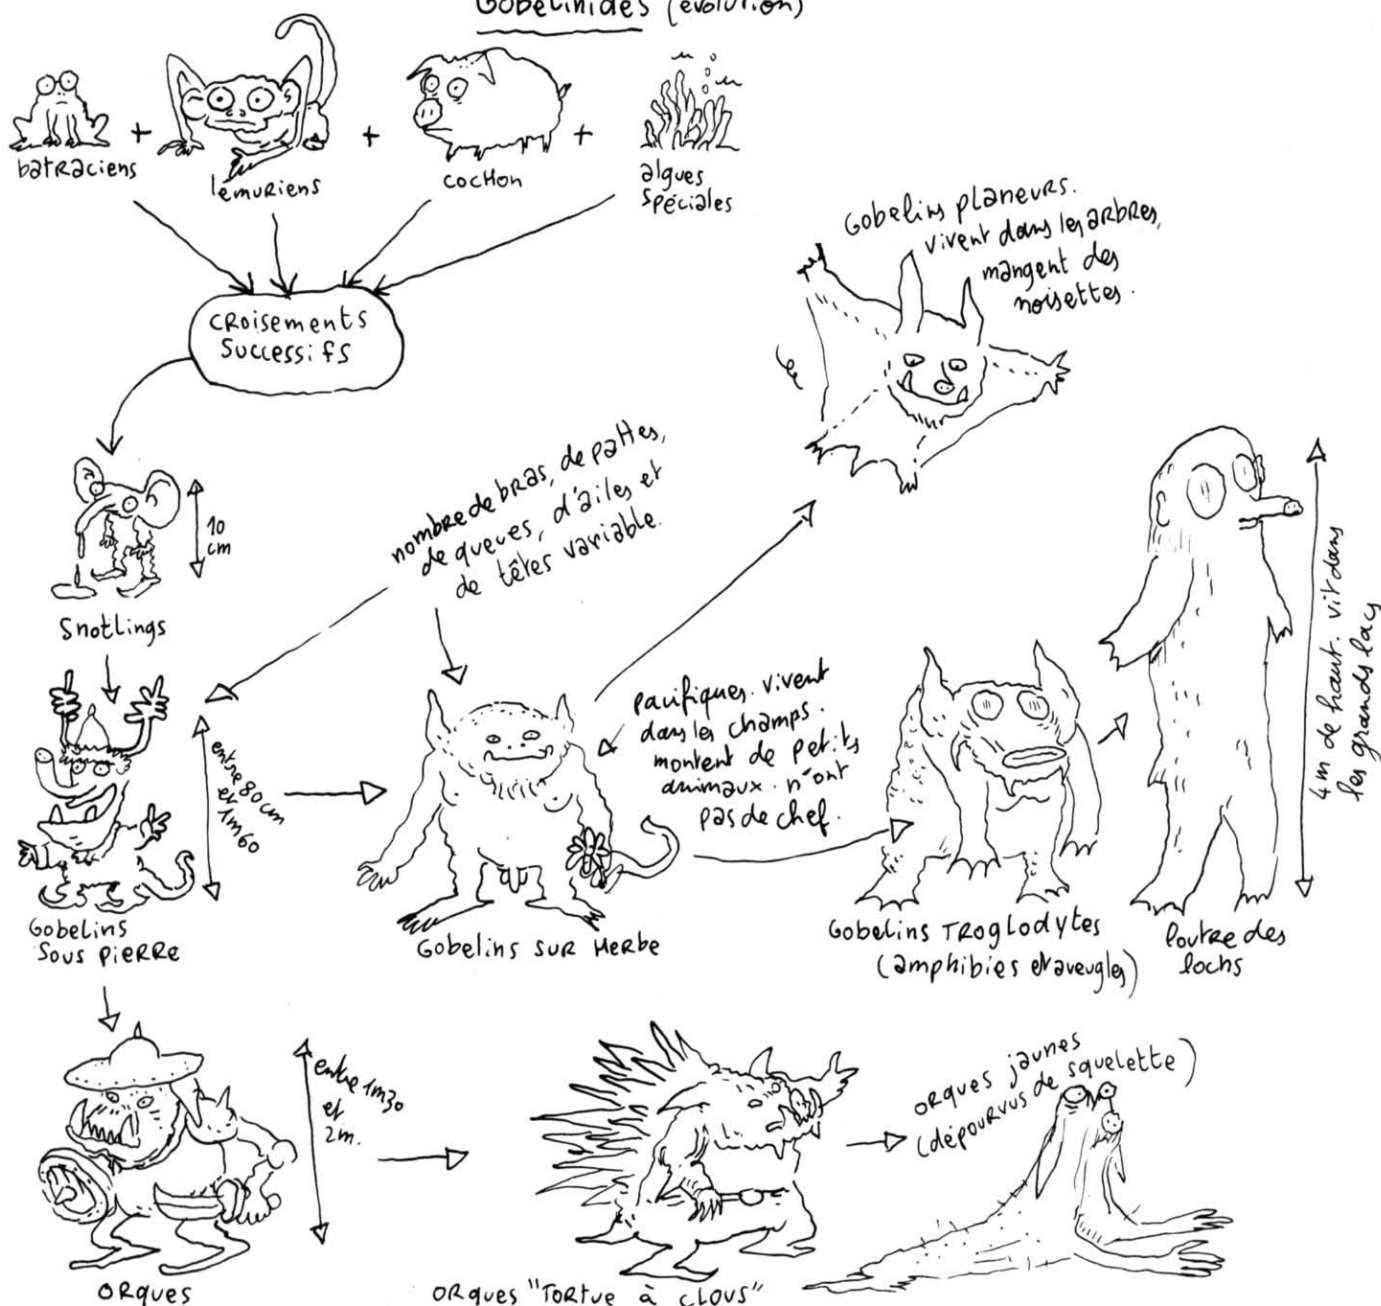 Gobelinides (évolution)
batraciens
+
lémuriens
+
cochon
+
algues
spéciales
croisements
successifs
Gobelins planeurs.
vivent dans les arbres,
mangent des
noisettes.
nombre de bras, de pattes,
de queues, d'ailes et
de têtes variable.
10
cm
Snotlings
entre 80 cm
et 1m60
Gobelins
sous pierre
pacifiques. vivent
dans les champs.
montent de petits
animaux. n'ont
pas de chef.
Gobelins sur herbe
Gobelins troglodytes
(amphibies et aveugles)
4 m de haut. vit dans
les grands lacs
loutre des
lochs
entre 1m30
et
2m.
orques
orques "tortue à clous"
orques jaunes
(dépourvus de squelette)